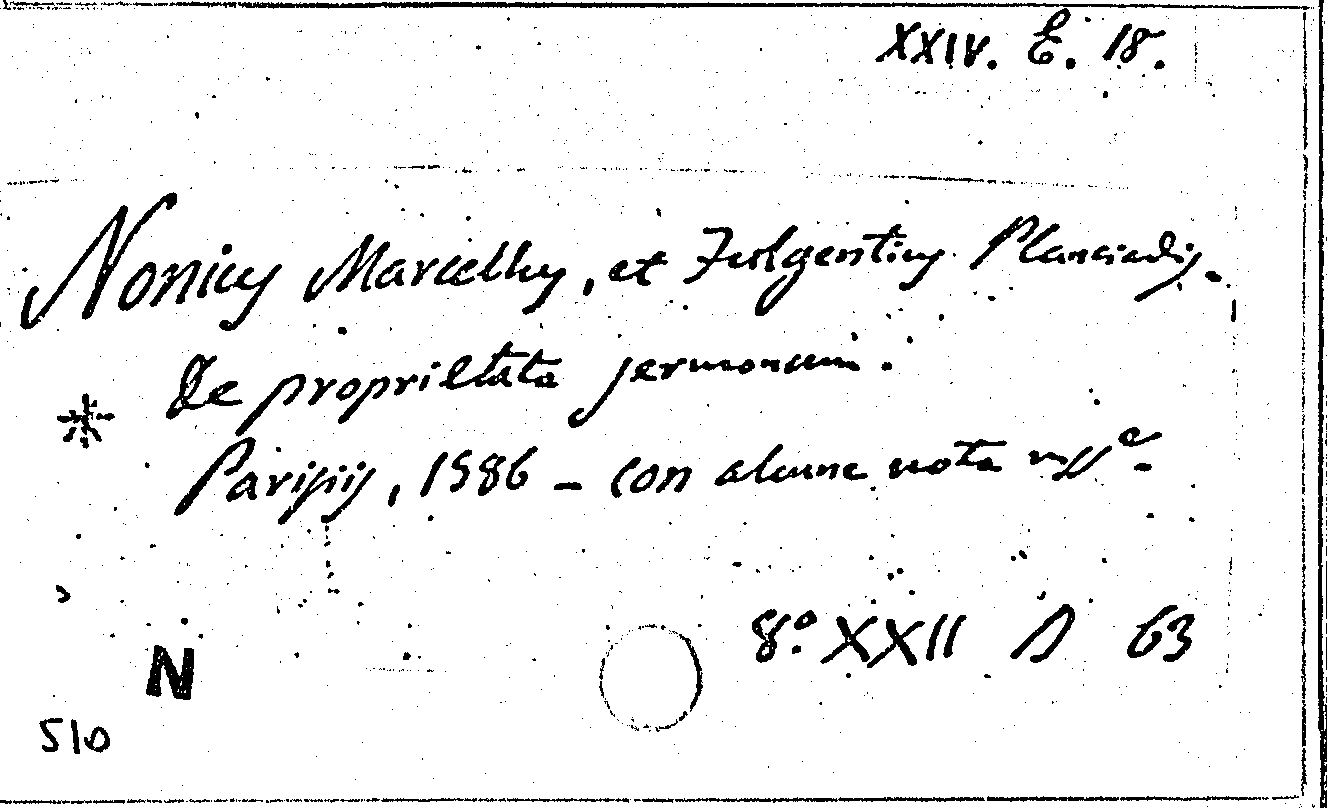 XXIV. E. 18.
Nonius Marcellus, et Fulgentius Planciadis.
De proprietate sermonum.
* Parisiis, 1586 - con alcune note mss.e
8.o XXII D 63
N
510